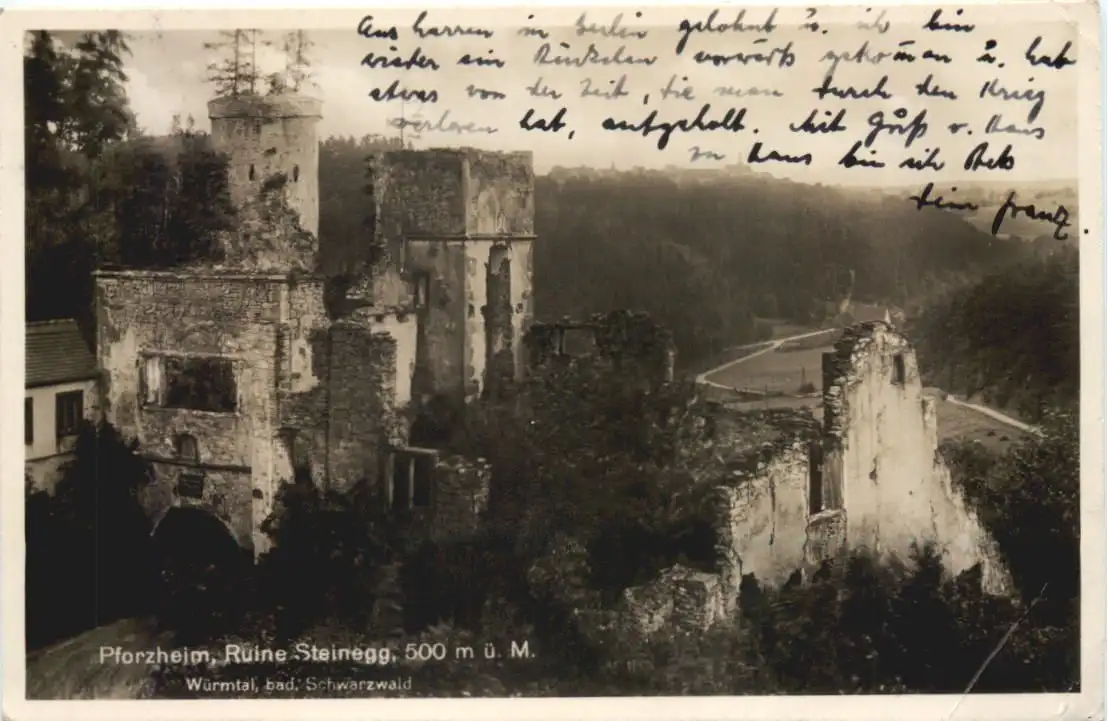 Ausharren in Berlin gelohnt u. ich bin
wieder ein Stückchen vorwärts gekommen u. hab
etwas von der Zeit, die man durch den Krieg
verloren hat, aufgeholt. Mit Gruß v. Haus
zu Haus bin ich stets
Dein Franz.
Pforzheim, Ruine Steinegg, 500 m ü. M.
Würmtal, bad. Schwarzwald